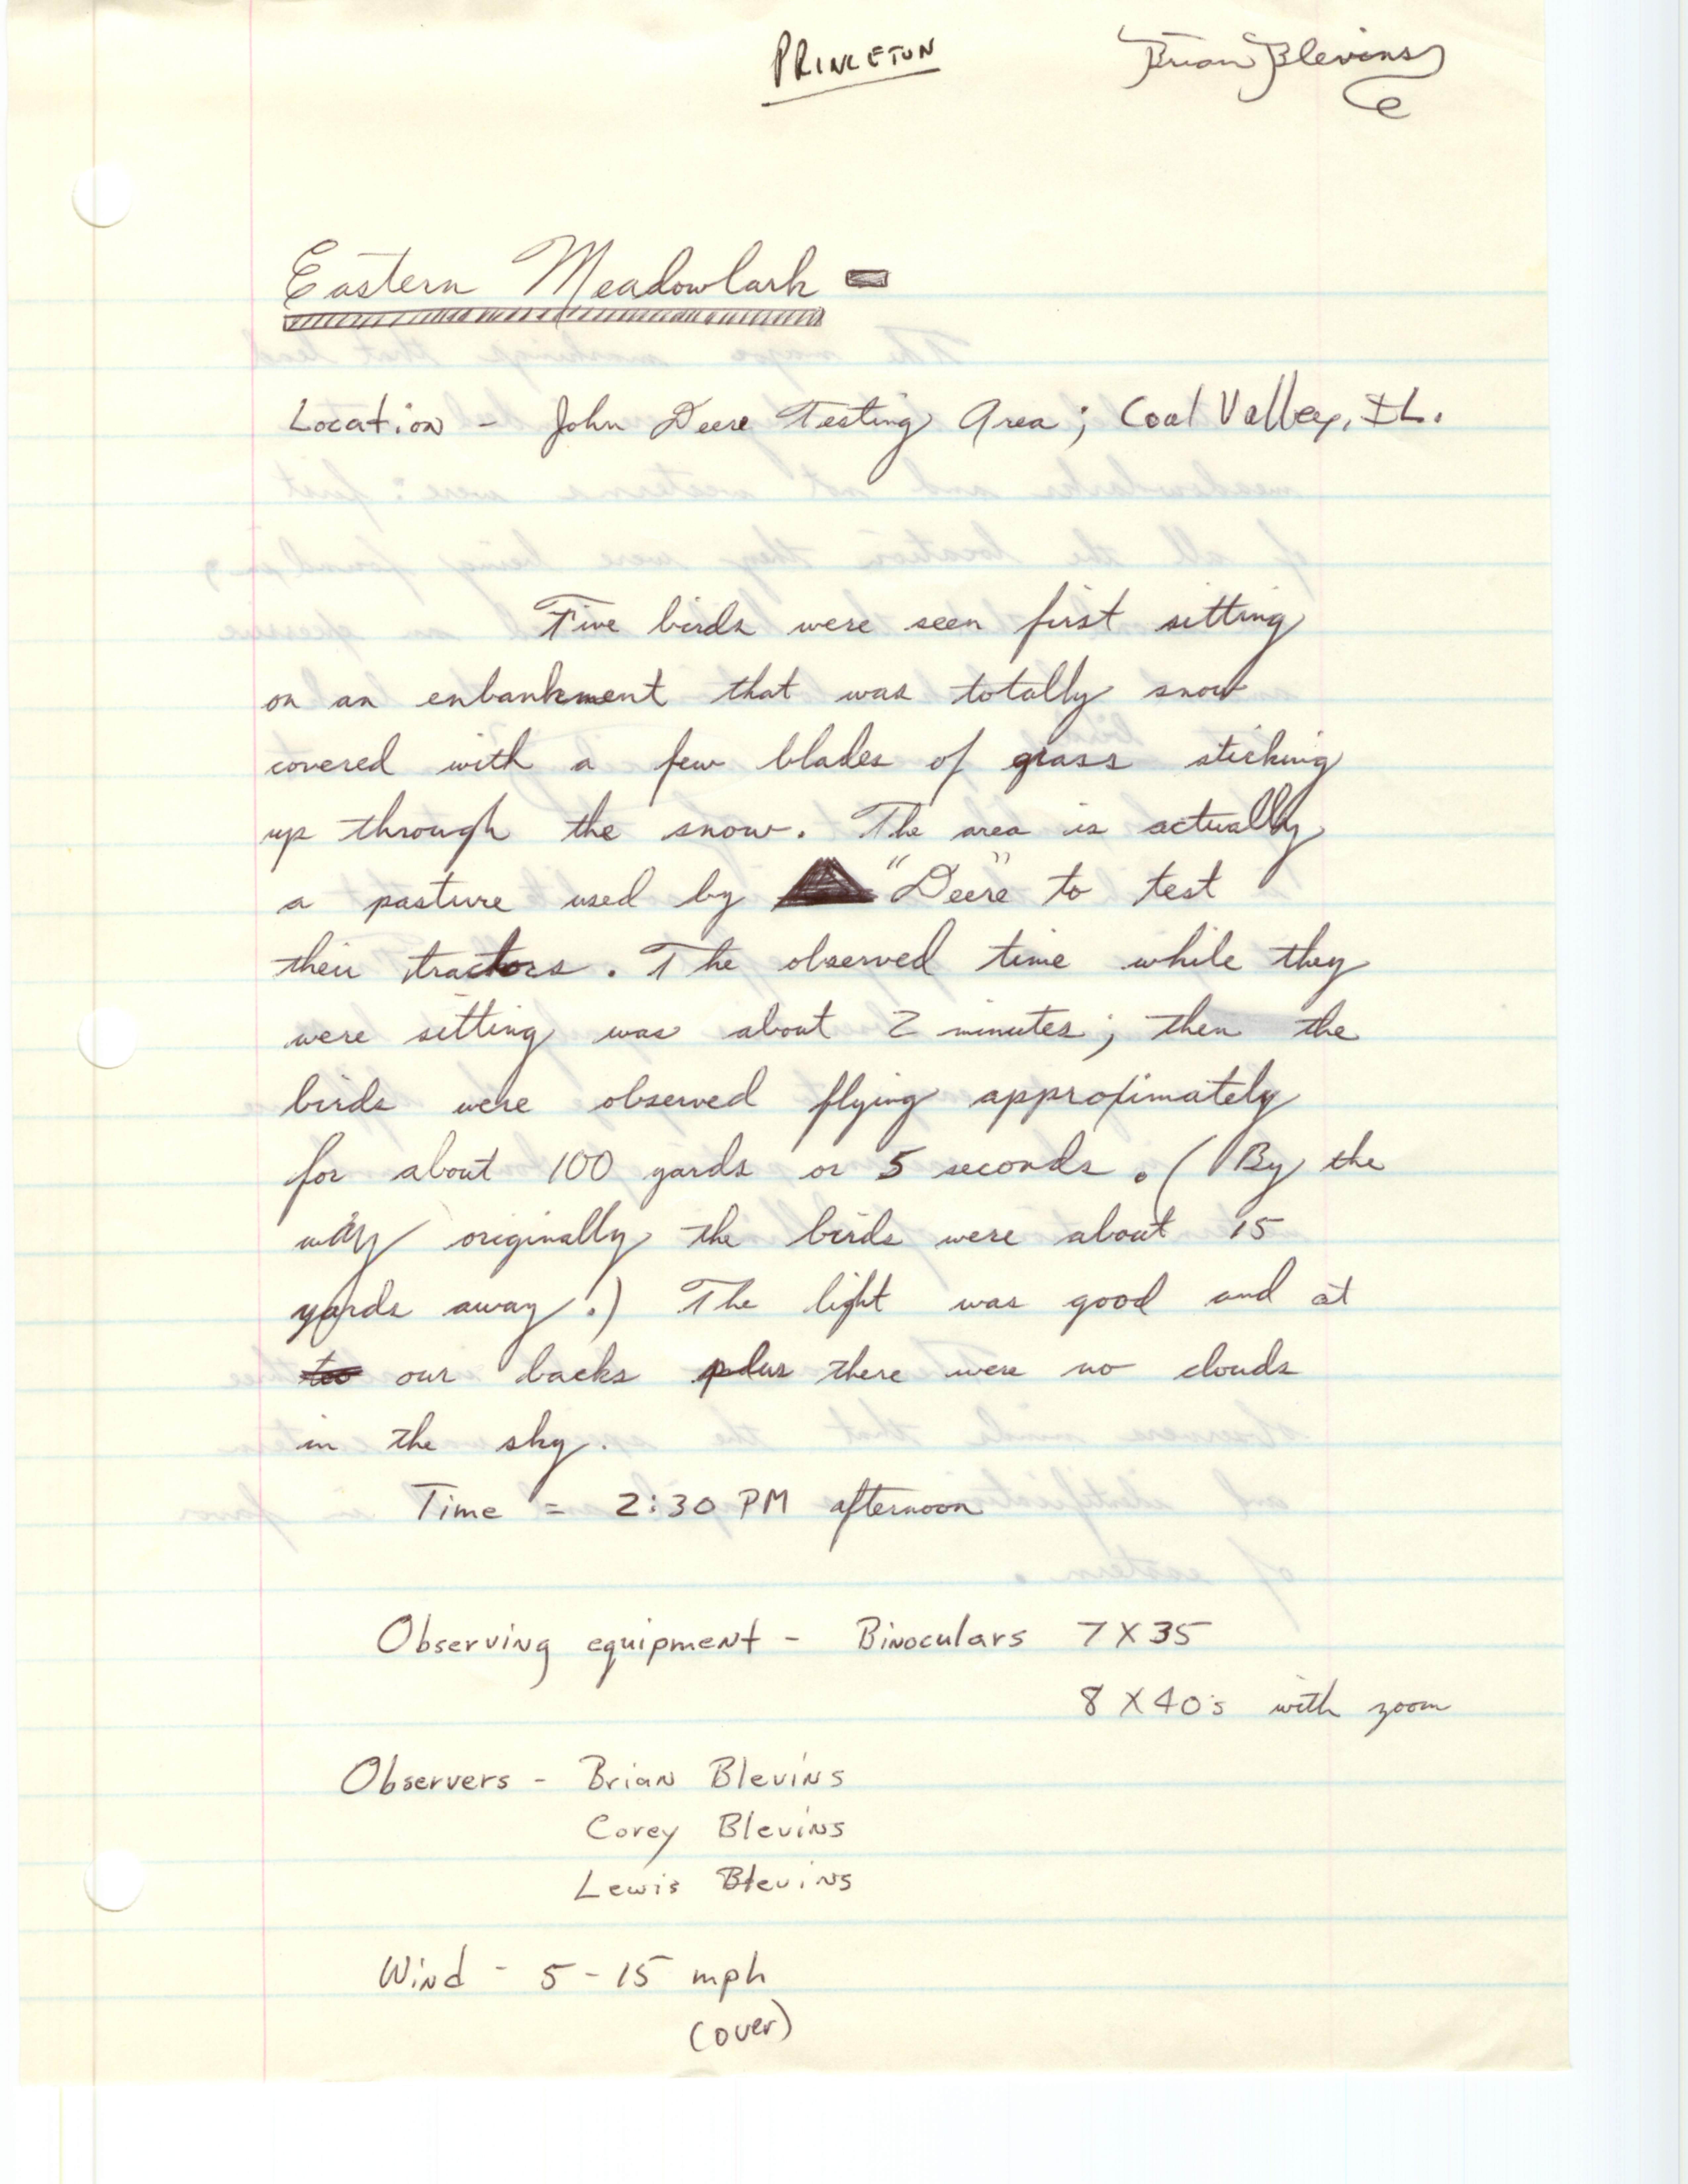 PRINCETON
Brian Blevins
Eastern Meadowlark
Location - John Deere Testing Area; Coal Valley, IL.
Five birds were seen first sitting
on an enbankment that was totally snow
covered with a few blades of grass sticking
up through the snow. The area is actually
a pasture used by "Deere" to test
their tractors. The observed time while they
were sitting was about 2 minutes; then the
birds were observed flying approximately
for about 100 yards or 5 seconds. (By the
way originally the birds were about 15
yards away.) The light was good and at
our backs plus there were no clouds
in the sky.
Time = 2:30 PM afternoon
Observing equipment - Binoculars 7X35
8X40's with zoom
Observers - Brian Blevins
Corey Blevins
Lewis Blevins
Wind - 5-15 mph
(over)